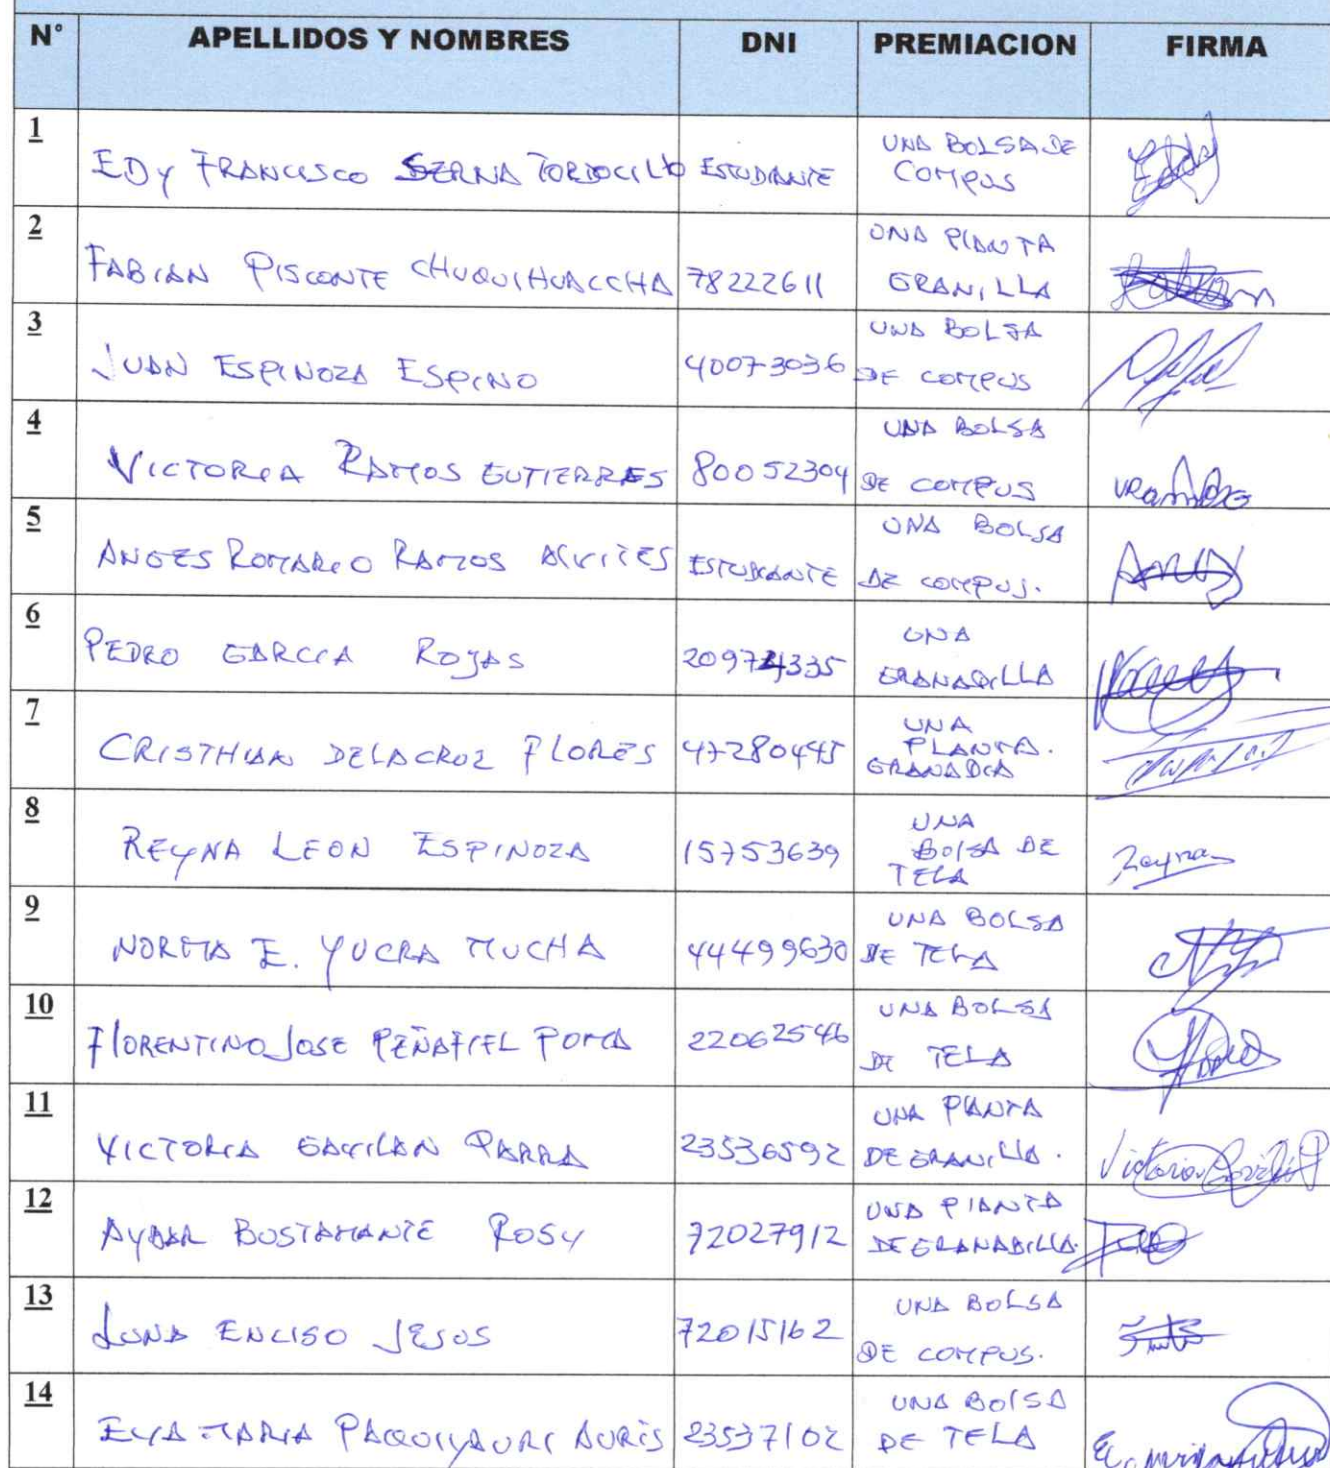 N° APELLIDOS Y NOMBRES DNI PREMIACION FIRMA
1 EDY FRANCISCO SERNA TORTOCILLO ESTUDIANTE UNA BOLSA DE COMPUS
2 FABIAN PISCONTE CHUQUIHUACCHA 78222611 UNA PLANTA GRANILLA
3 JUAN ESPINOZA ESPINO 40073036 UNA BOLSA DE COMPUS
4 VICTORIA RAMOS GUTIERRES 80052304 UNA BOLSA DE COMPUS
5 ANGES ROMARIO RAMOS ALVITES ESTUDIANTE UNA BOLSA DE COMPUS.
6 PEDRO GARCIA ROJAS 20974335 UNA GRANADILLA
7 CRISTHIAN DELACRUZ FLORES 47280445 UNA PLANTA. GRANADIA
8 REYNA LEON ESPINOZA 15753639 UNA BOLSA DE TELA Reyna
9 NORMA E. YUCRA MUCHA 44499630 UNA BOLSA DE TELA
10 FLORENTINO JOSE PEÑAFIEL POMA 22062546 UNA BOLSA DE TELA
11 VICTORIA GAVILAN PARRA 23536592 UNA PLANTA DE GRANILLA. Victoria Gavilan P
12 AYBAR BUSTAMANTE ROSY 72027912 UNA PLANTA DE GRANADILLA.
13 LUNA ENCISO JESUS 72015162 UNA BOLSA DE COMPUS.
14 EVA MARIA PAQUIYAURI AURIS 23537102 UNA BOLSA DE TELA